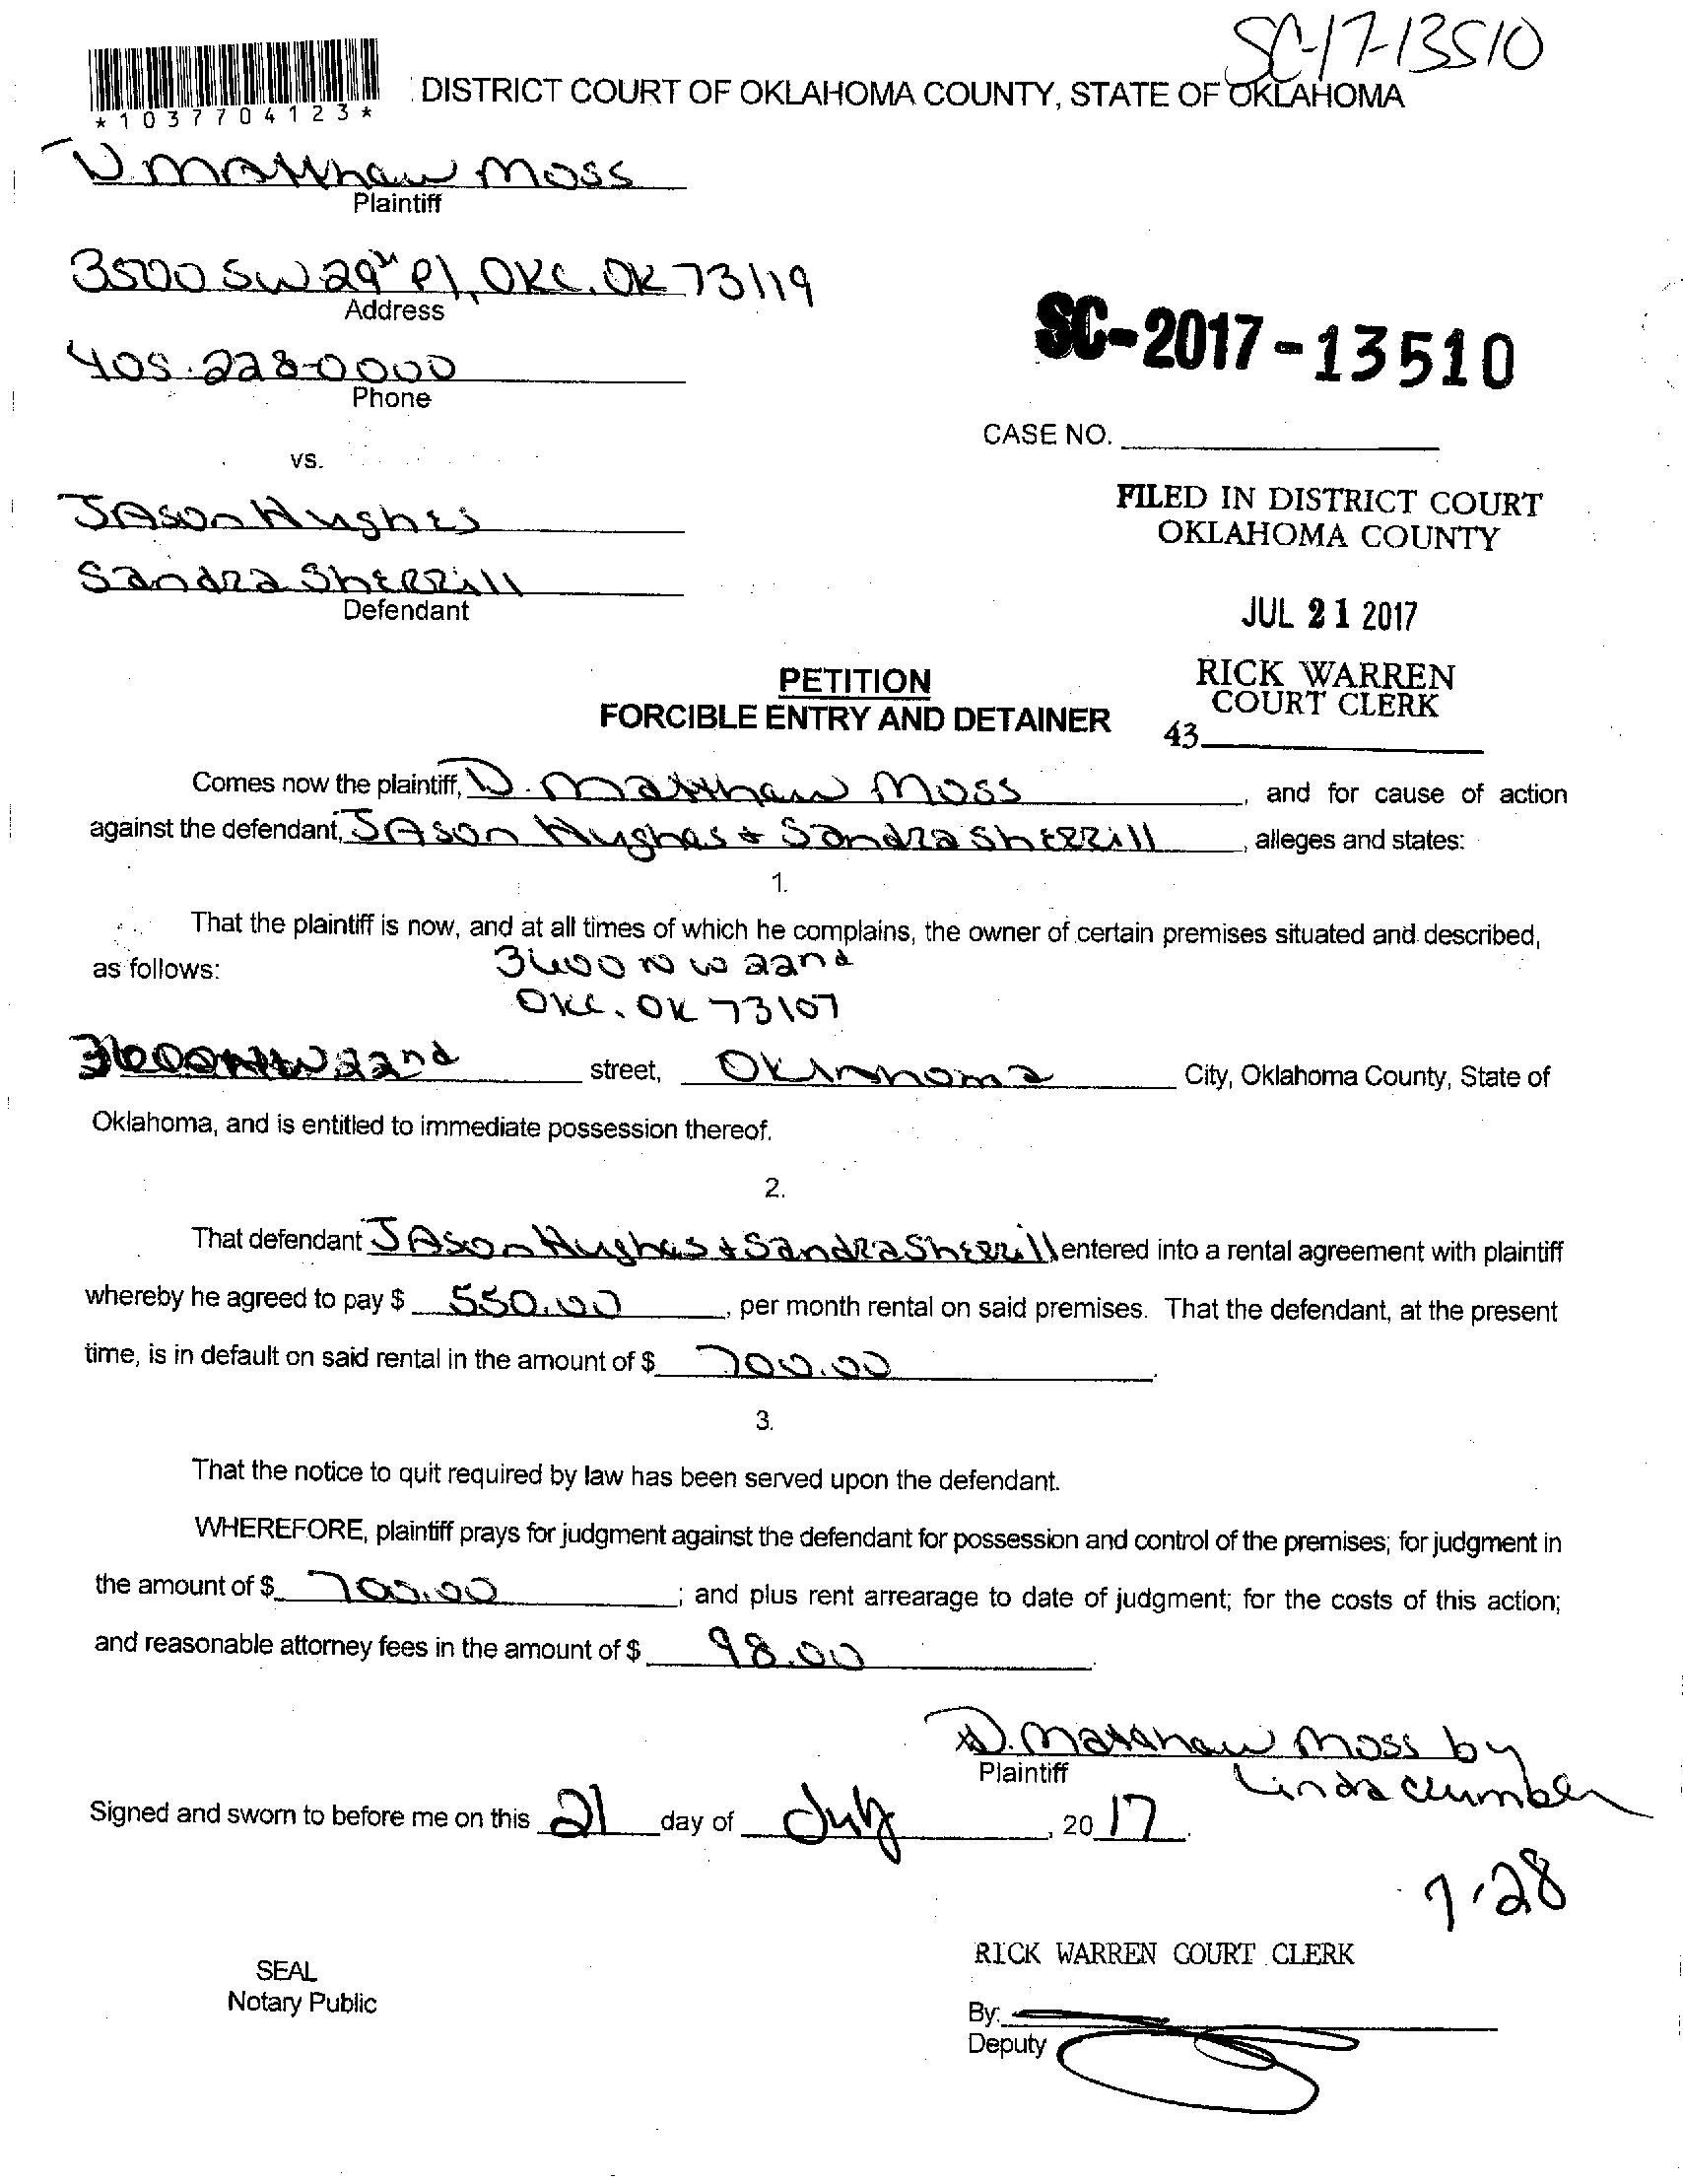 SC-17-13510
*1037704123*
DISTRICT COURT OF OKLAHOMA COUNTY, STATE OF OKLAHOMA
D. Matthew Moss
Plaintiff
3500 SW 29th Pl, OKC, OK 73119
Address
405-228-0000
Phone
SC-2017-13510
CASE NO.
vs.
Jason Hughes
Sandra Sherrill
Defendant
FILED IN DISTRICT COURT
OKLAHOMA COUNTY
JUL 21 2017
RICK WARREN
COURT CLERK
43
PETITION
FORCIBLE ENTRY AND DETAINER
Comes now the plaintiff, D. Matthew Moss, and for cause of action
against the defendant, Jason Hughes + Sandra Sherrill, alleges and states:
1.
That the plaintiff is now, and at all times of which he complains, the owner of certain premises situated and described,
as follows: 3600 NW 22nd
OKC, OK 73107
3600 NW 22nd street, Oklahoma City, Oklahoma County, State of
Oklahoma, and is entitled to immediate possession thereof.
2.
That defendant Jason Hughes + Sandra Sherrill entered into a rental agreement with plaintiff
whereby he agreed to pay $ 550.00, per month rental on said premises. That the defendant, at the present
time, is in default on said rental in the amount of $ 700.00.
3.
That the notice to quit required by law has been served upon the defendant.
WHEREFORE, plaintiff prays for judgment against the defendant for possession and control of the premises; for judgment in
the amount of $ 700.00; and plus rent arrearage to date of judgment; for the costs of this action;
and reasonable attorney fees in the amount of $ 98.00.
D. Matthew Moss by
Plaintiff
Linda
Signed and sworn to before me on this 21 day of July, 2017.
7-28
RICK WARREN COURT CLERK
SEAL
Notary Public
By:
Deputy